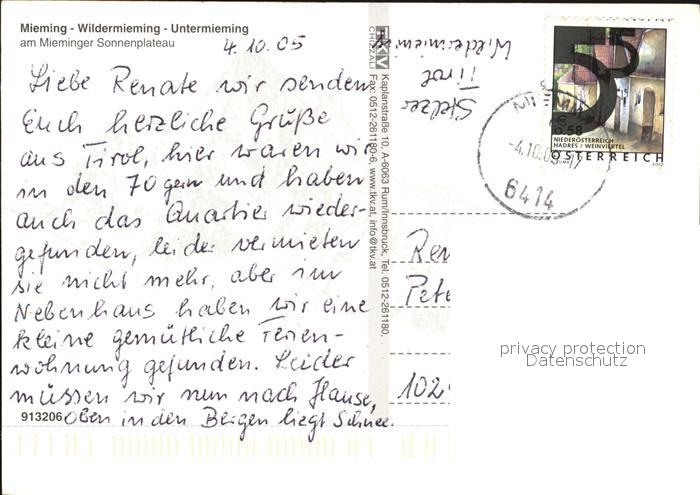 Mieming - Wildermieming - Untermieming
am Mieminger Sonnenplateau
4.10.05
Liebe Renate wir senden
Euch herzliche Grüße
aus Tirol, hier waren wir
in den 70gern und haben
auch das Quartier wieder-
gefunden, leider vermieten
sie nicht mehr, aber im
Nebenhaus haben wir eine
kleine gemütliche Ferien-
wohnung gefunden. Leider
müssen wir nun nach Hause,
Oben in den Bergen liegt Schnee.
913206
TKV
CHIZZALI
Kaplanstraße 10, A-6063 Rum/Innsbruck, Tel. 0512-261180,
Fax: 0512-261180-6, www.tkv.at, info@tkv.at
Stelzer
Tirol
Wildermiemi
MIEMI
-4.10.05-17
6414
€
0.58
NIEDERÖSTERREICH
HADRES / WEINVIERTEL
ÖSTERREICH
Ren
Pete
102
privacy protection
Datenschutz